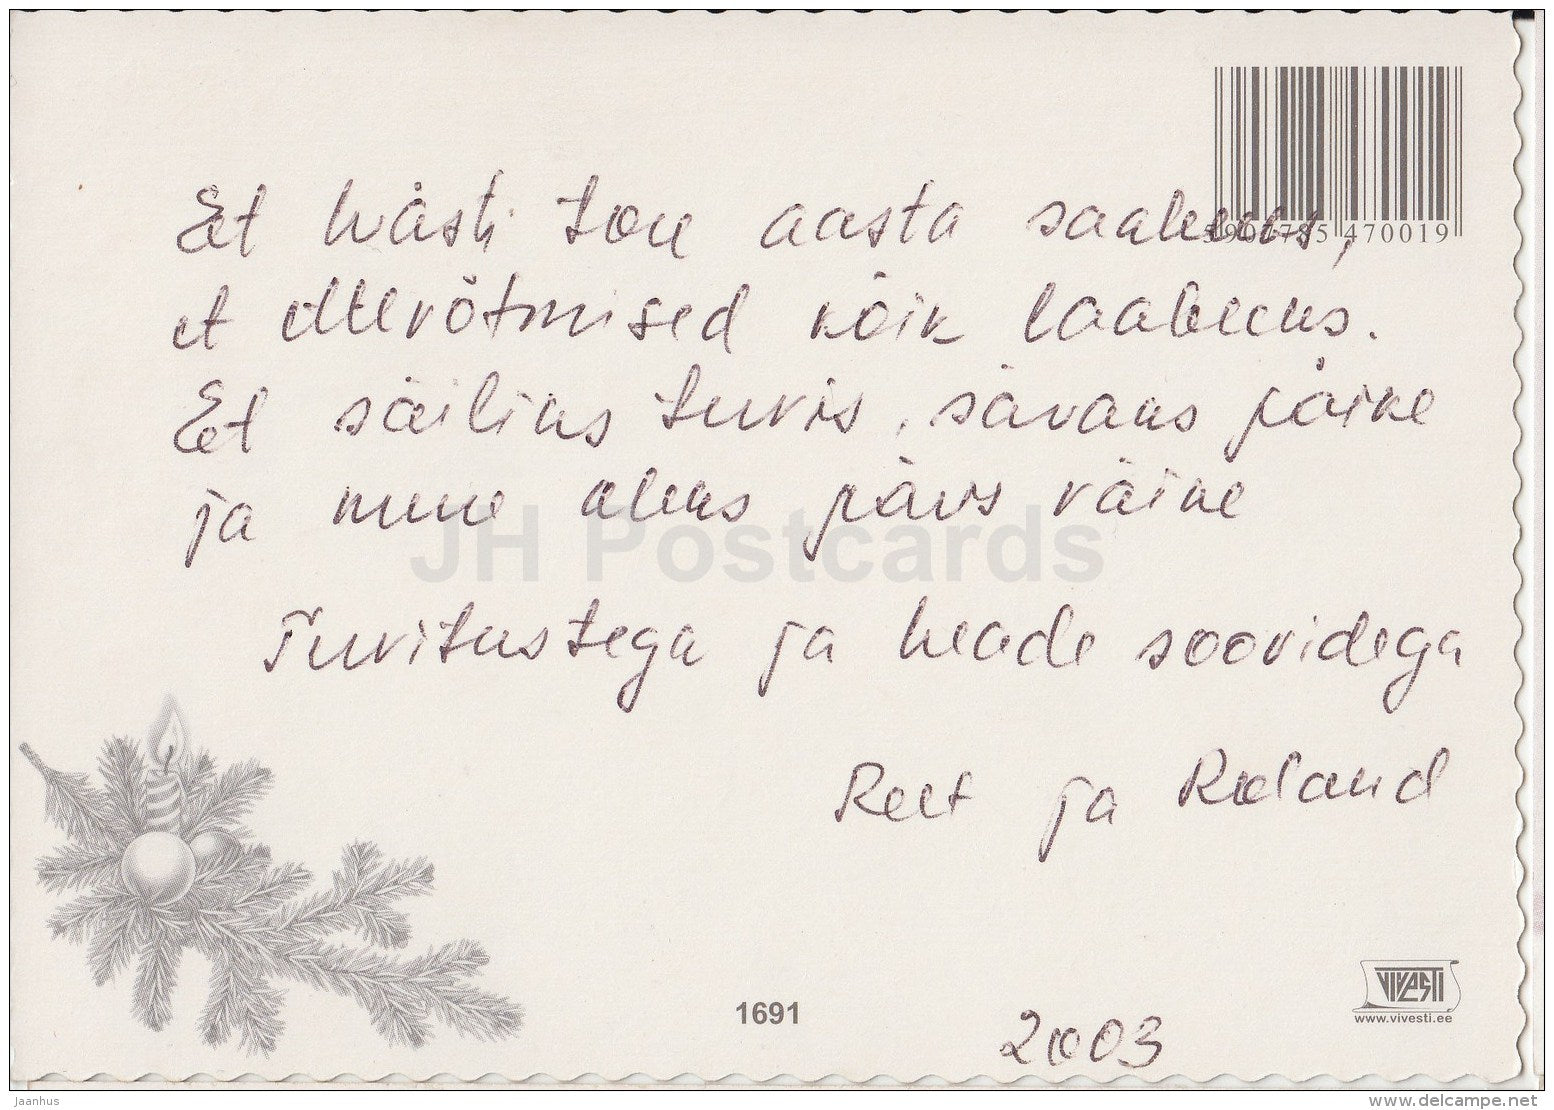 Et hästi tore aasta saabuks,
et ettevõtmised kõik laabuks.
Et säiliks tervis, säraks päike
ja mure oleks päris väike
Tervitustega ja heade soovidega
Reet ja Roland
2003
5 900785 470019
1691
VIVESTI
www.vivesti.ee
JH Postcards
Jaanhus
www.delcampe.net